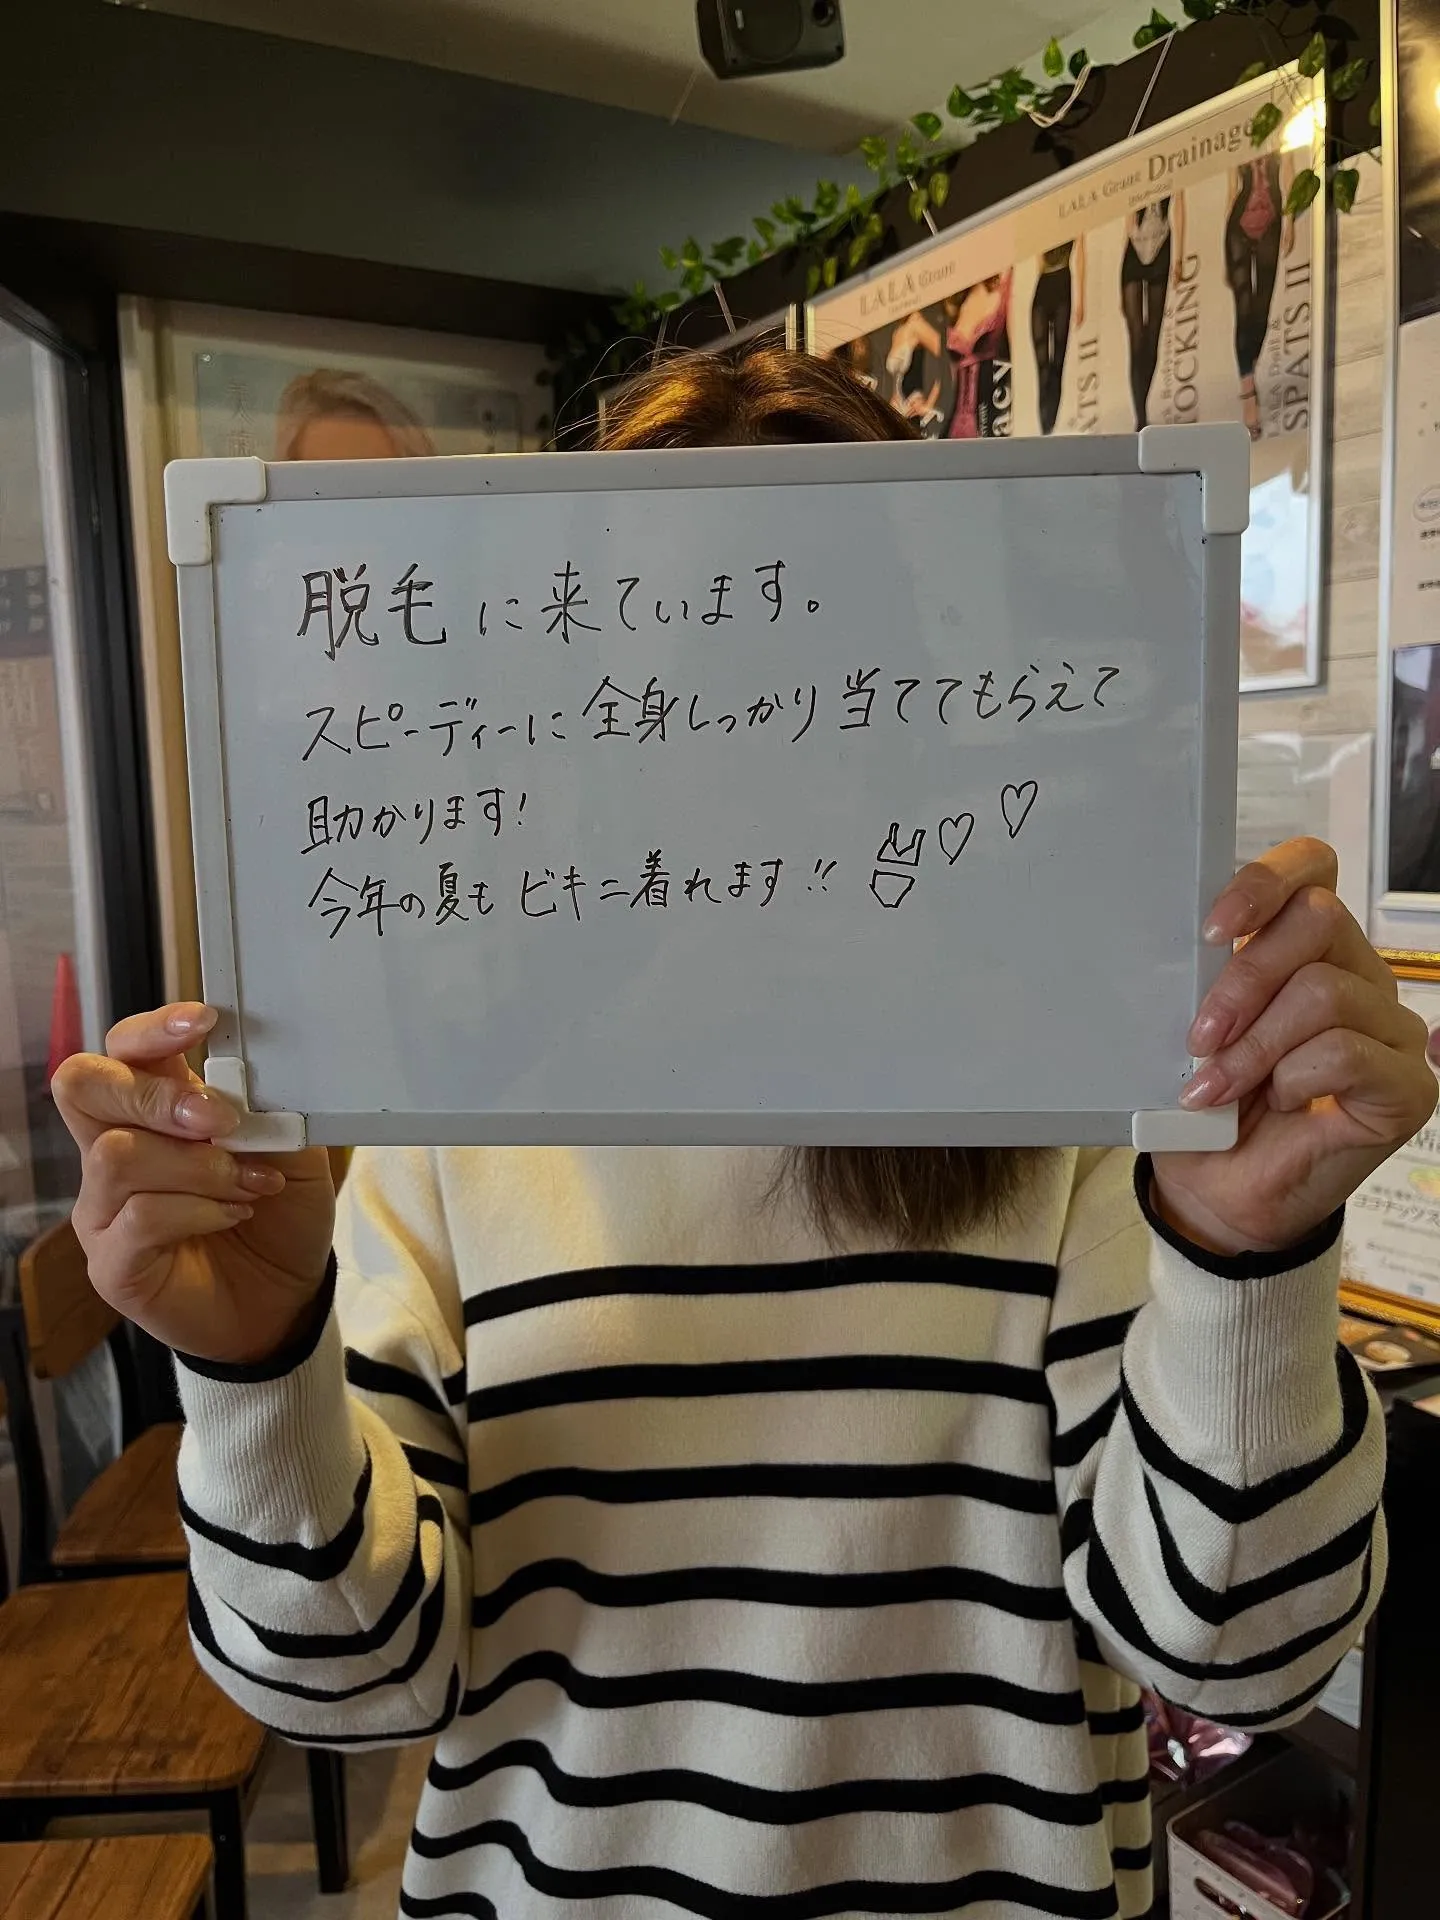 脱毛に来ています。
スピーディーに全身しっかり当ててもらえて
助かります!
今年の夏もビキニ着れます!!
LALA Grant Drainage
LALA Grant
STOCKING
SPATS II